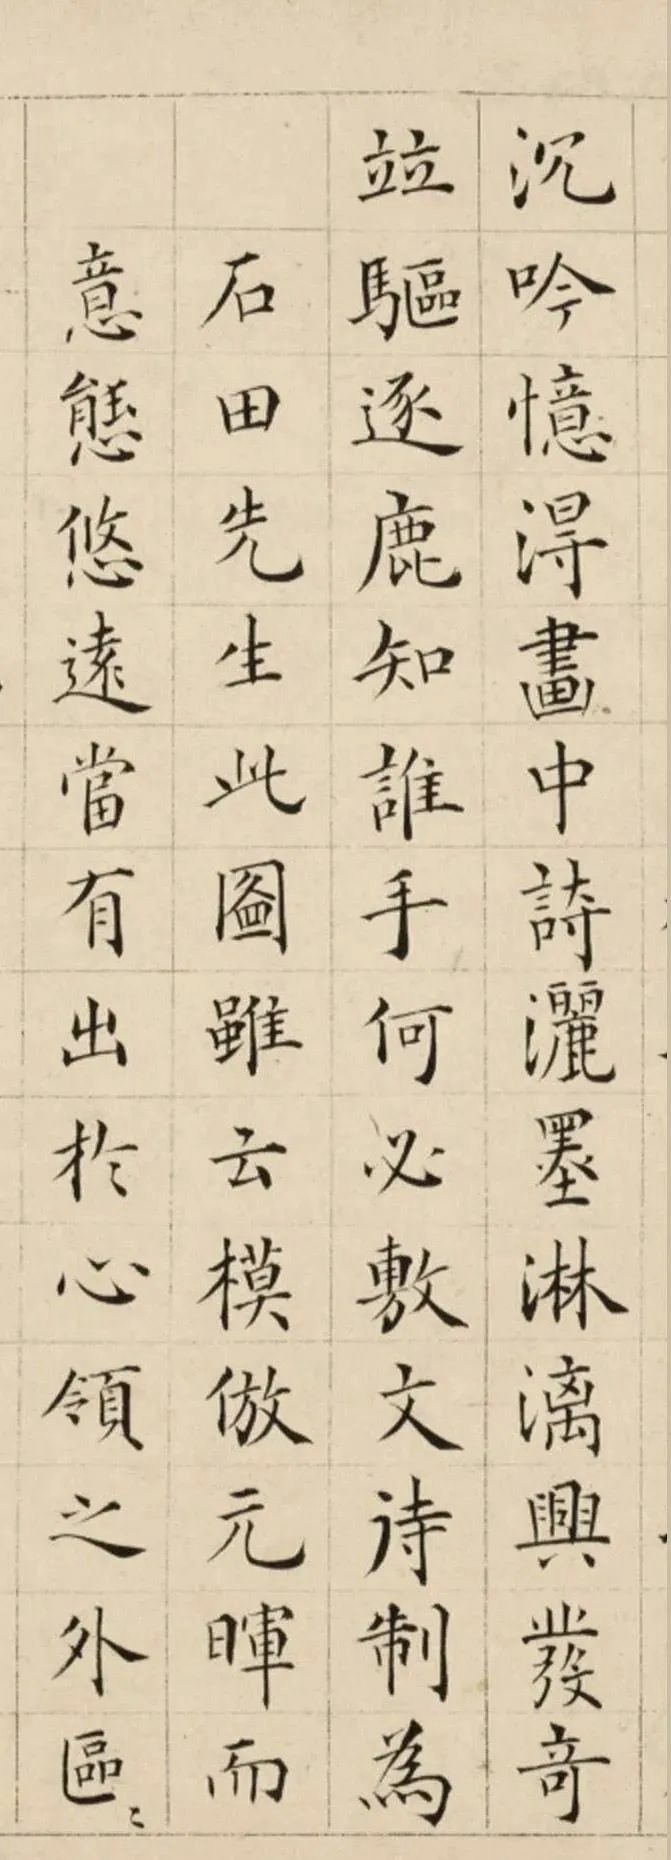 沉吟憶得畫中詩灑墨淋漓興發奇
並驅逐鹿知誰手何必敷文待制為
石田先生此圖雖云模倣元暉而
意態悠遠當有出於心領之外區〻